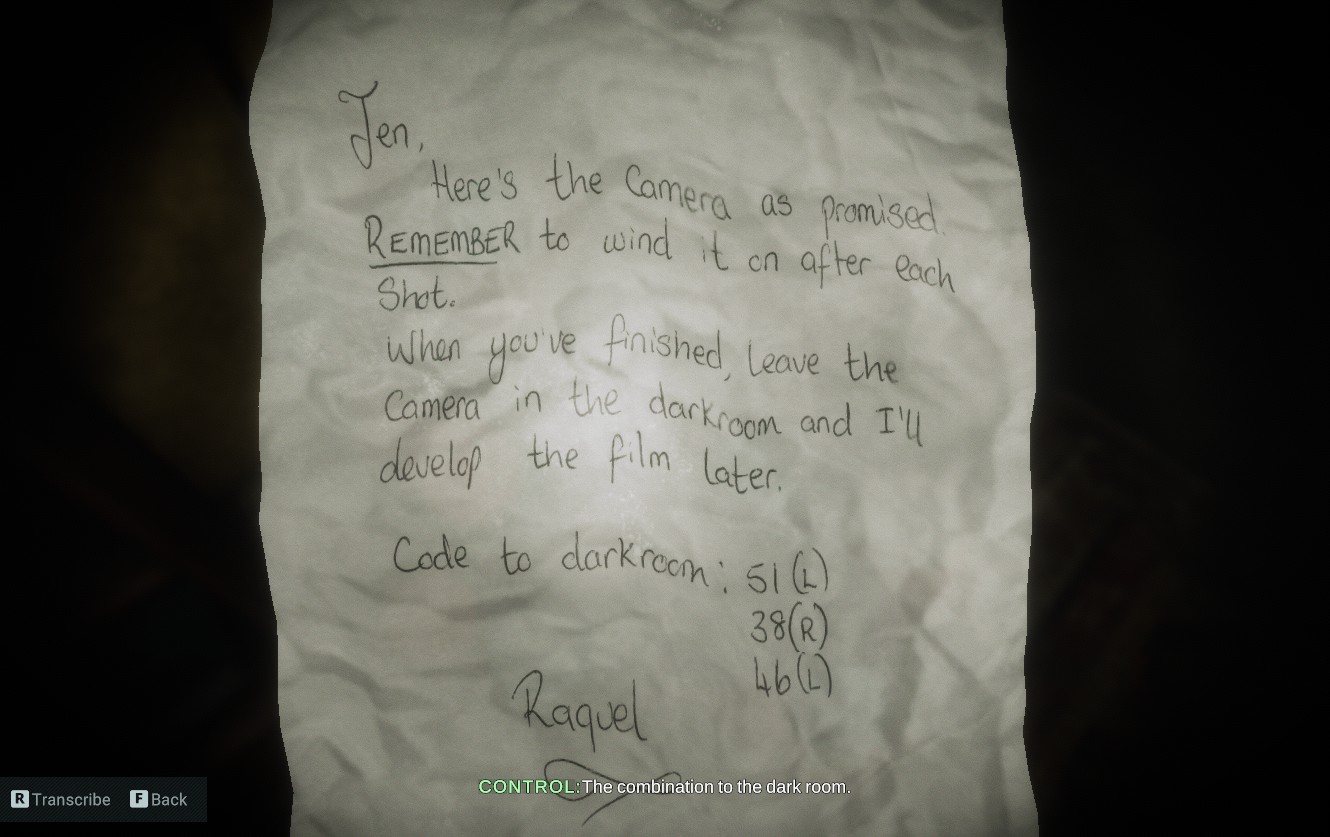 Jen,
Here's the Camera as promised.
REMEMBER to wind it on after each
Shot.
When you've finished, leave the
Camera in the darkroom and I'll
develop the film later.
Code to darkroom: 51 (L)
38(R)
46(L)
Raquel
CONTROL:The combination to the dark room.
R Transcribe F Back